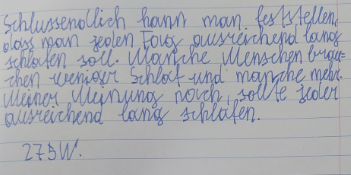 Schlussendlich kann man feststellen,
dass man jeden Tag ausreichend lang
schlafen soll. Manche Menschen brau-
chen weniger Schlaf und manche mehr.
Meiner Meinung nach, sollte jeder
ausreichend lang schlafen.
275W.